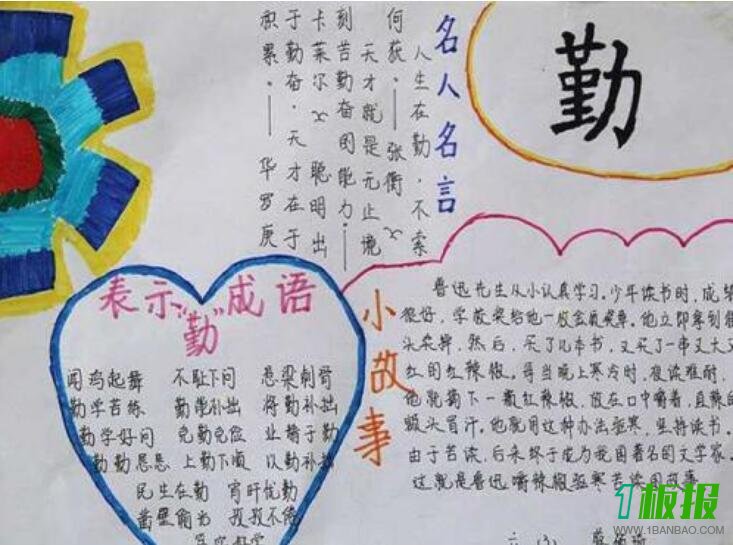 勤
名人名言
人生在勤，不索
何获。——张衡
天才就是无止境
刻苦勤奋的能力·——
卡莱尔 聪明出
于勤奋·天才在于
积累·——华罗庚
表示"勤"成语
闻鸡起舞 不耻下问 悬梁刺骨
勤学苦练 勤能补拙 将勤补拙
勤学好问 克勤克俭 业精于勤
勤勤恳恳 上勤下顺 以勤补拙
民生在勤 宵旰忧勤
凿壁偷光 孜孜不倦
好学
小故事
鲁迅先生从小认真学习。少年读书时，成绩
很好，学校奖给他一枚金质奖章。他立即拿到
头卖掉，然后，买了几本书，又买了一串又大又
红的红辣椒。每当晚上寒冷时，夜读难耐，
他就摘下一颗红辣椒，放在口中嚼着，直辣的
额头冒汗。他就用这种办法驱寒，坚持读书。
由于苦读，后来终于成为我国著名的文学家。
这就是鲁迅嚼辣椒驱寒苦读的故事
六（3）
1板报
WWW.1BANBAO.COM